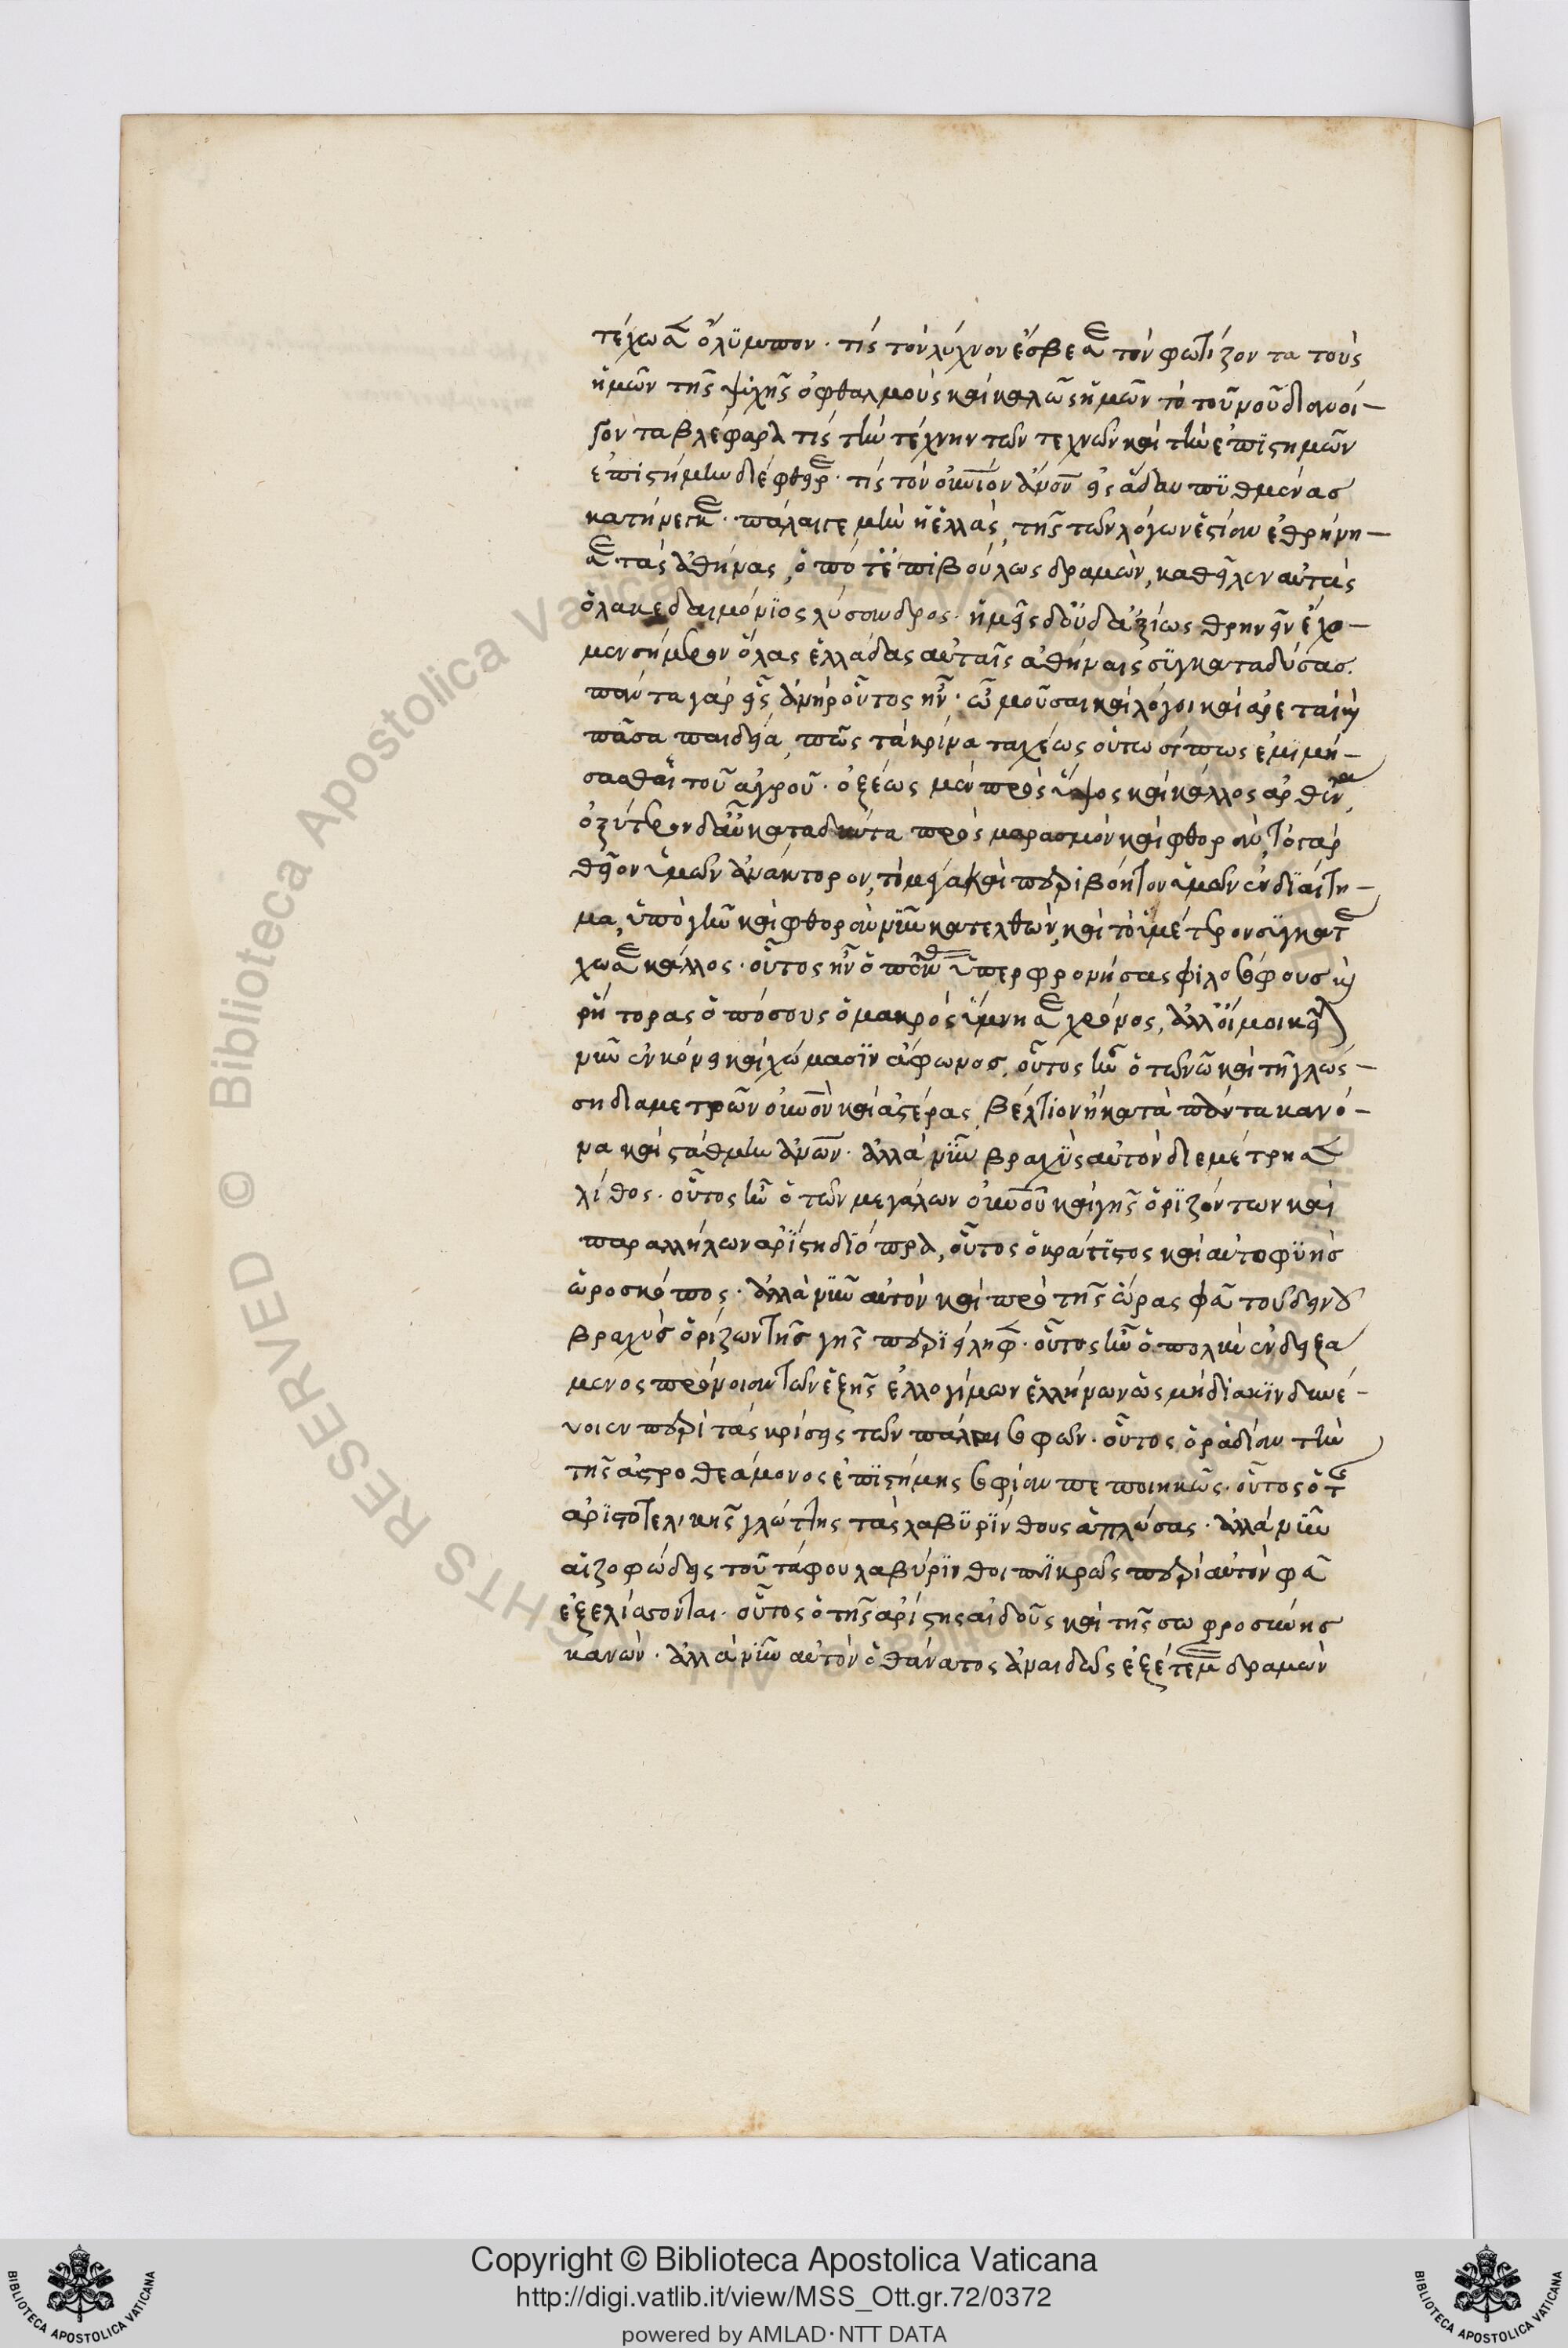 τέχωσ ὄλϋμπον. τίς τὸν λύχνον ἔσβεσε τὸν φωτίζοντα τοὺς
ἡμῶν τῆς ψϋχῆς ὀφθαλμοὺς καὶ καλῶς ἡμῶν τὸ τοῦ νοῦ διανοί-
γοντα βλέφαρα τίς τὴν τέχνην τῶν τεχνῶν καὶ τὴν ἐπϊστημῶν
ἐπιστήμην διέφθειρε. τίς τὸν οὐνιον ἄνον εἰς ᾅδου πϋθμένασ
κατήνεγκε. πάλαι γε μὴν ἡ ἑλλάς, τῆς τῶν λόγων ἑστίαν ἐθρήνη-
σε. τὰς ἀθήνας, ὁπότε πιβούλως δραμὼν, καθεῖλεν αὐτὰς
ὁ λακεδαιμόνϊος λύσανδρος. ἡμεῖς δ οὐδ ἀξίως θρηνεῖν ἔχο-
μεν σήμερον ὅλας ἑλλάδας αὐταῖς ἀθήναις σϋγκαταδύσασ.
πάντα γὰρ εἷς ἀνὴρ οὗτος ἦν. ὦ μοῦσαι καὶ λόγοι καὶ ἀρεταὶ καὶ
πᾶσα παιδεία, πῶς τὰ κρίνα ταχέως οὕτω σίπως ἐμιμή-
σασθαι τοῦ ἀγροῦ. ὀξέως μὲν πρὸς ὕψος καὶ κάλλος ἀρθέντα,
ὀξύτερον δ αὖ καταδύντα πρὸς μαρασμὸν καὶ φθοράν, τὸ γὰρ
θεῖον ὑμῶν ἀνάκτορον, τὸ μέγα καὶ περιβόητον ὑμῶν ἐνδϊαίτη-
μα, ὑπὸ γῆν καὶ φθορὰν νῦν κατελθὼν, καὶ τὸ ὑμέτερον σϋγκατέ
χωσε κάλλος. οὗτος ἦν ὁ πάντων ὑπερφρονήσας φιλοσόφους καὶ
ῥήτορας ὁπόσους ὁ μακρὸς ὕμνησε χρόνος, ἀλλ οἴμοι κεῖται
νῦν ἐν κόνει καὶ χώμασϊν ἄφωνοσ. οὗτος ἦν ὁ τῶ νῶ καὶ τῇ γλώς-
ση διαμετρῶν οὐνὸν καὶ ἀστέρας, βέλτιον ἢ κατὰ πάντα κανό-
να καὶ στάθμην ἀνῶν. ἀλλὰ νῦν βραχὺς αὐτὸν διεμέτρησε
λίθος. οὗτος ἦν ὁ τῶν μεγάλων οὐνοῦ καὶ γῆς ὁρϊζόντων καὶ
παραλλήλων ἀρίστη διόπτρα, οὗτος ὁ κράτϊστος καὶ αὐτοφϋὴσ
ὡροσκόπος. ἀλλὰ νῦν αὐτὸν καὶ πρὸ τῆς ὥρας φεῦ τοῦ δεινοῦ
βραχὺς ὁρίζων τῆς γῆς περϊείληφε. οὗτος ἦν ὁ πολλὴν ἐνδειξά
μενος πρόνοιαν τῶν ἑξῆς ἐλλογίμων ἑλλήνων ὡς μὴ διακϊνδυνέ-
υοιεν περὶ τὰς κρίσεις τῶν πάλαι σοφῶν. οὗτος ὁ ῥᾳδίαν τὴν
τῆς ἀστροθεάμονος ἐπϊστήμης σοφίαν πεποιηκὼς. οὗτος ὁ τῆς
ἀρϊστοτελικῆς γλώττης τὰς λαβϋρϊνθους ἁπλώσας. ἀλλὰ νῦν
αἱ ζοφώδεις τοῦ τάφου λαβύρϊνθοι πϊκρῶς περὶ αὐτὸν φεῦ
ἐξελίσσονται. οὗτος ὁ τῆς ἀρίστης αἰδοῦς καὶ τῆς σωφροσύνησ
κανών. ἀλλὰ νῦν αὐτὸν ὁ θάνατος ἀναιδῶς ἐξέτεμε δραμὼν
Copyright © Biblioteca Apostolica Vaticana
http://digi.vatlib.it/view/MSS_Ott.gr.72/0372
powered by AMLAD·NTT DATA